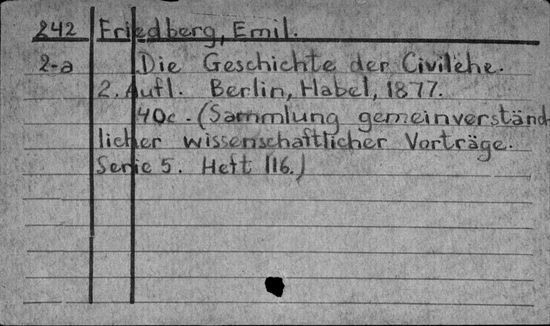 242 Friedberg, Emil.
2-a Die Geschichte der Civilehe.
2. Aufl. Berlin, Habel, 1877.
40c. (Sammlung gemeinverständ
licher wissenschaftlicher Vorträge.
Serie 5. Heft 116.)